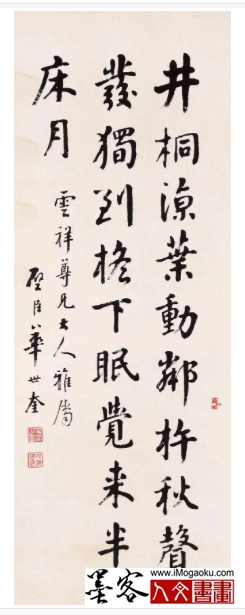 井桐涼葉動鄰杵秋聲
發獨到檐下眠覺来半
床月
雲祥尊兄大人雅屬
啓臣華世奎
www.iMogaoku.com
墨客
人文書畫